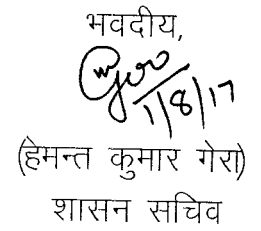 भवदीय,
1/8/17
(हेमन्त कुमार गेरा)
शासन सचिव